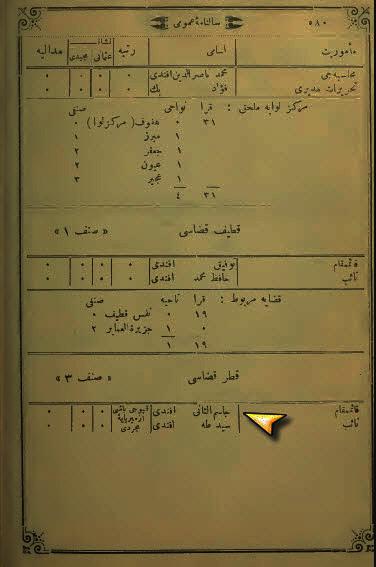 ٥٨٠ سالنامهٔ عمومی
مأموریت اسامی رتبه نشان عثمانی مجیدی مدالیه
محاسبه‌جی محمد ناصرالدین افندی ٠ ٠ ٠ ٠
تحریرات مدیری فؤاد بك ٠ ٠ ٠ ٠
مركز لوایه ملحق : قرا نواحی صنفی
٣١ ٠ هفوف (مركز لوا) ٠
١ مبرز ١
١ جعفر ٢
١ عیون ٢
١ ٣
٣١ ٤
قطیف قضاسی « صنف ١ »
قائممقام توفیق افندی ٠ ٠ ٠ ٠
نائب حافظ محمد افندی ٠ ٠ ٠ ٠
قضایه مربوط : قرا ناحیه صنفی
١٩ ٠ نفس قطیف ٠
٠ ١ جزیرة العمایر ٢
١٩ ١
قطر قضاسی « صنف ٣ »
قائممقام جاسم الثانی افندی قپوجی باشی ٠ ٠ ٠
نائب سید طه افندی ٠ ٠ ٠